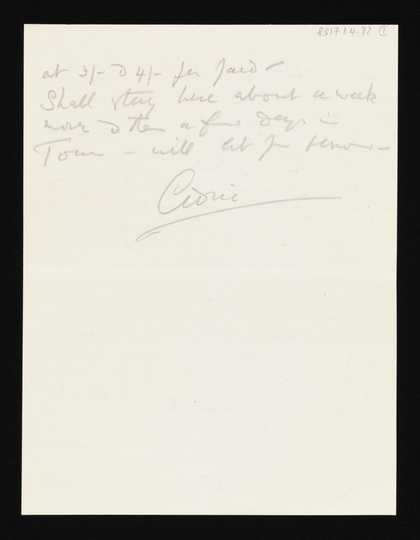 8317.1.4.72
at 3/- & 4/- per yard –
Shall stay here about a week
more & then a few days in
Town – will let you know –
Cedric